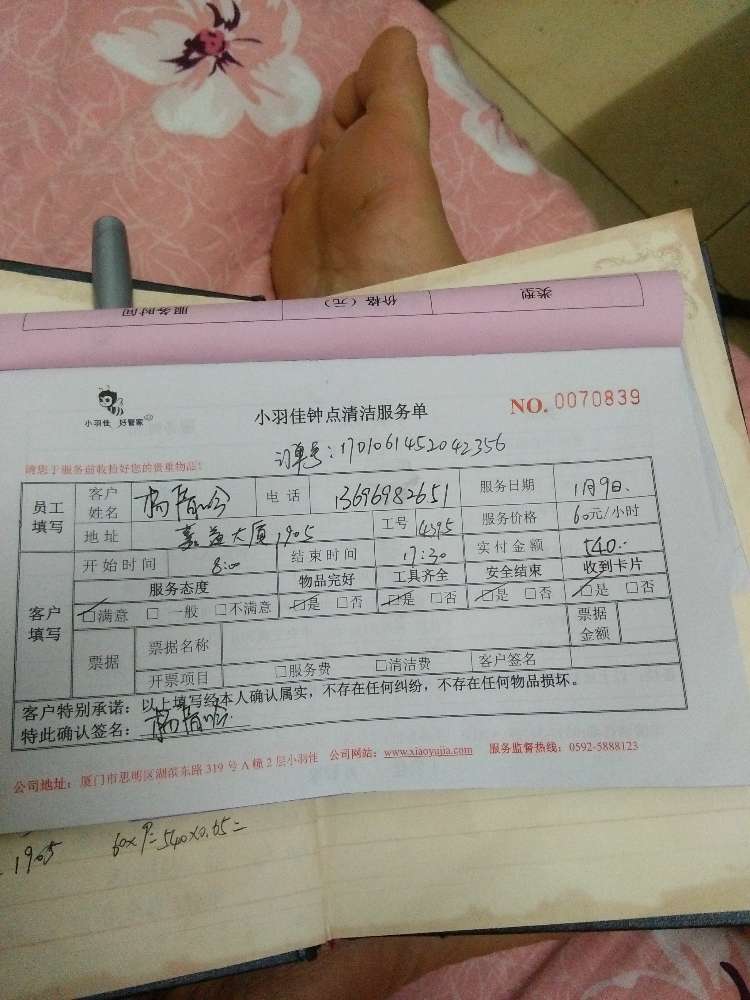 服务时间 价格（元） 类型
小羽佳 好管家
小羽佳钟点清洁服务单 NO. 0070839
订单号：1701061452042356
请您于服务前收拾好您的贵重物品！
员工填写 客户姓名 电话 13696982651 服务日期 1月9日.
地址 嘉益大厦1905 工号 4395 服务价格 60元/小时
客户填写 开始时间 8:00 结束时间 17:30 实付金额 540.-
服务态度 物品完好 工具齐全 安全结束 收到卡片
□满意 □一般 □不满意 □是 □否 □是 □否 □是 □否 □是 □否
票据 票据名称 票据金额
开票项目 □服务费 □清洁费 客户签名
客户特别承诺：以上填写经本人确认属实，不存在任何纠纷，不存在任何物品损坏。
特此确认签名：
公司地址：厦门市思明区湖滨东路319号A幢2层小羽佳 公司网站：www.xiaoyujia.com 服务监督热线：0592-5888123
1905 60×9=540×0.65=